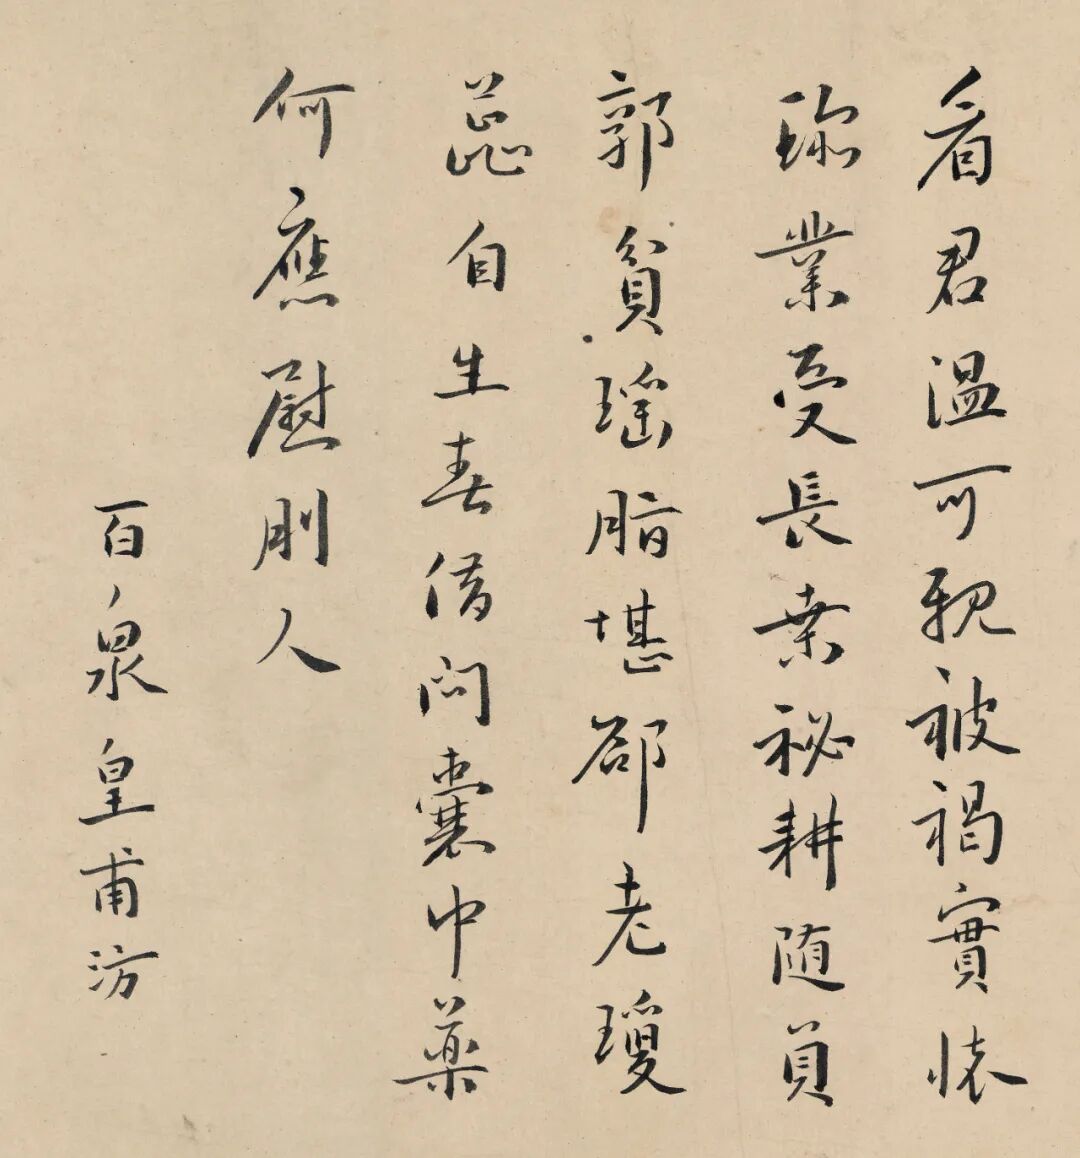 看君温可親被褐實懷
珎業受長桒祕耕随負
郭貧瑶脂堪郤老瓊
蕊自生春借問囊中藥
何應慰別人
百泉皇甫汸